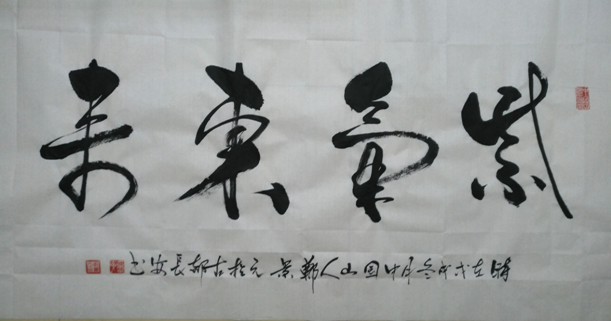 紫氣東來
時在戊戌冬月中国山人鄭景元於古都長安书